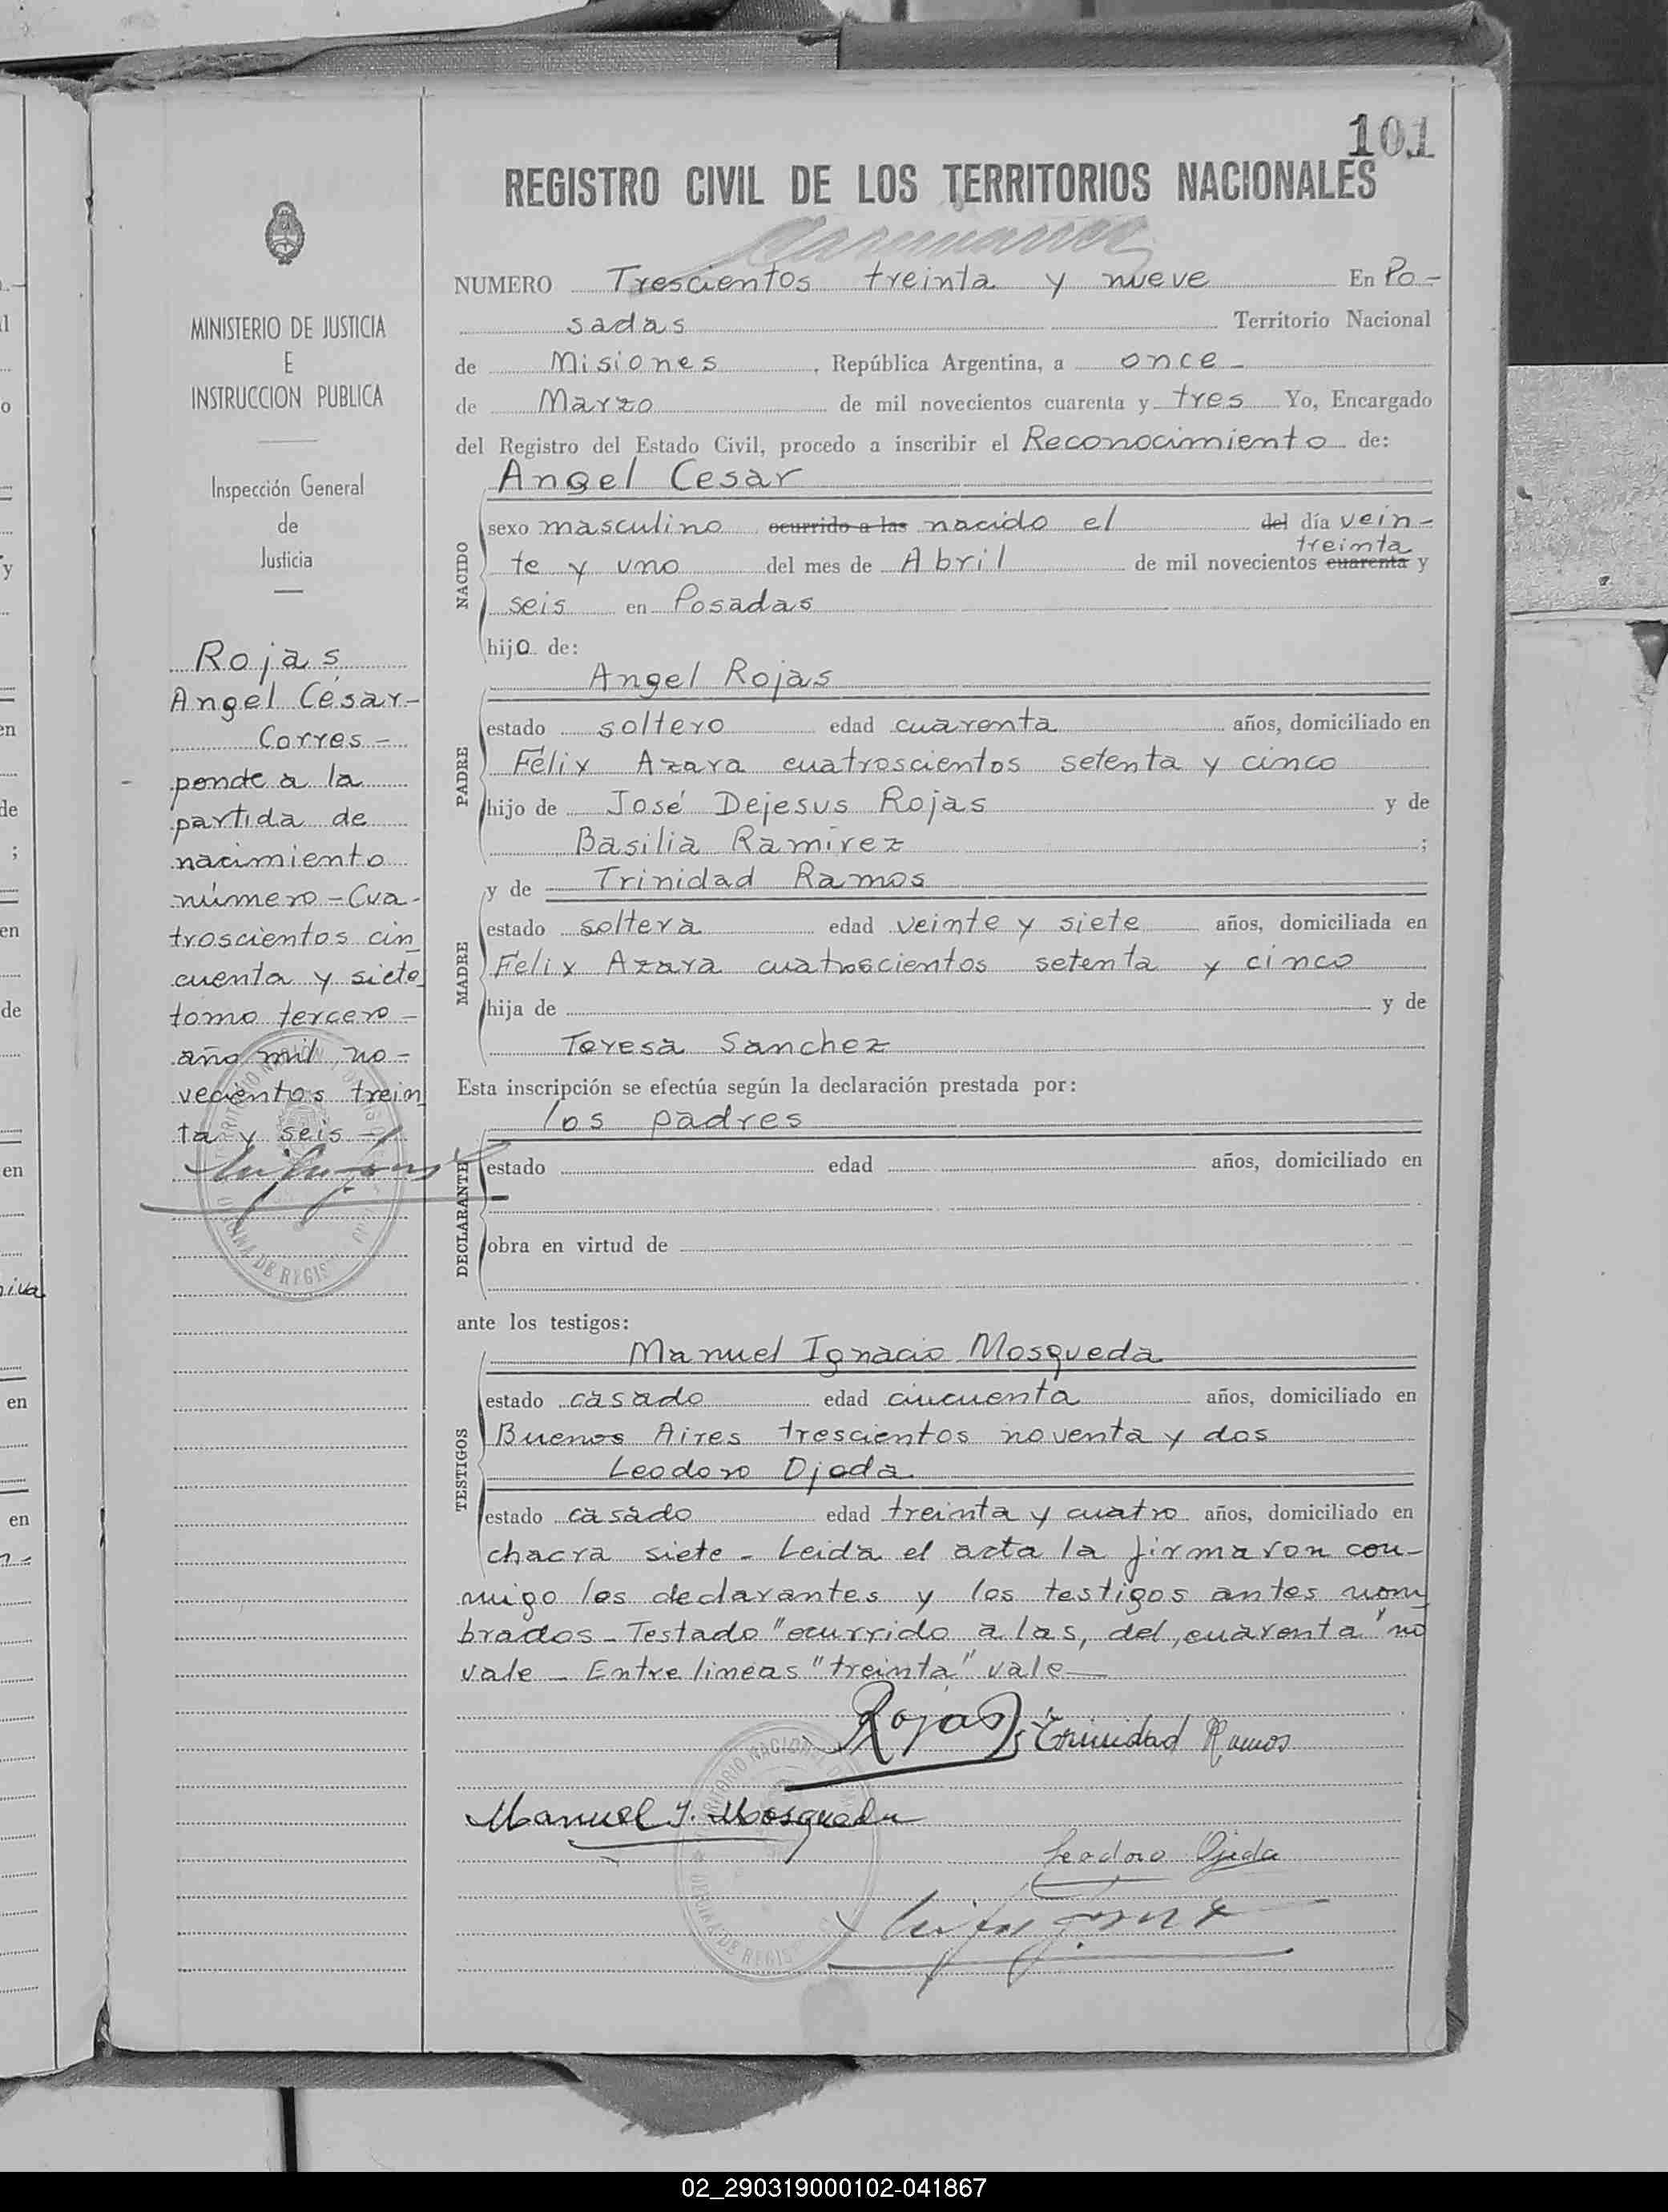 101
REGISTRO CIVIL DE LOS TERRITORIOS NACIONALES
NUMERO Trescientos treinta y nueve En Po-
sadas Territorio Nacional
de Misiones, República Argentina, a once-
de Marzo de mil novecientos cuarenta y tres Yo, Encargado
del Registro del Estado Civil, procedo a inscribir el Reconocimiento de:
NACIDO
Angel Cesar
sexo masculino ocurrido a las nacido el del día vein-
treinta
te y uno del mes de Abril de mil novecientos cuarenta y
seis en Posadas
hijo de:
PADRE
Angel Rojas
estado soltero edad cuarenta años, domiciliado en
Félix Azara cuatroscientos setenta y cinco
hijo de José Dejesus Rojas y de
Basilia Ramirez ;
MADRE
y de Trinidad Ramos
estado soltera edad veinte y siete años, domiciliada en
Felix Azara cuatroscientos setenta y cinco
hija de y de
Teresa Sanchez
Esta inscripción se efectúa según la declaración prestada por:
DECLARANTE
los padres
estado edad años, domiciliado en
obra en virtud de
ante los testigos:
TESTIGOS
Manuel Ignacio Mosqueda
estado casado edad cincuenta años, domiciliado en
Buenos Aires trescientos noventa y dos
Leodoro Ojeda
estado casado edad treinta y cuatro años, domiciliado en
chacra siete - Leida el acta la firmaron con-
migo los declarantes y los testigos antes nom
brados - Testado "ocurrido a las, del, cuarenta" no
vale - Entre lineas "treinta" vale
Rojas Trinidad Ramos
Manuel I. Mosqueda
Leodoro Ojeda
MINISTERIO DE JUSTICIA
E
INSTRUCCION PUBLICA
Inspección General
de
Justicia
Rojas
Angel Cesar-
Corres-
ponde a la
partida de
nacimiento
número - Cua-
troscientos cin
cuenta y siete
tomo tercero-
año mil no-
vecientos trein
ta y seis -
02_290319000102-041867